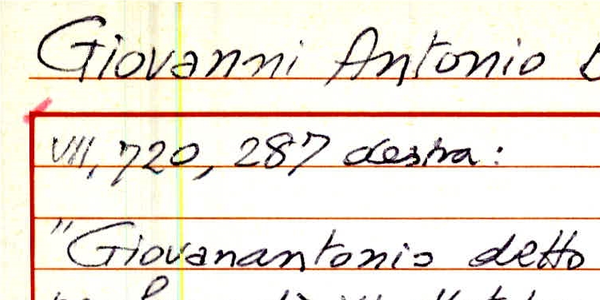 Giovanni Antonio
VII, 720, 287 destra:
"Giovanantonio detto